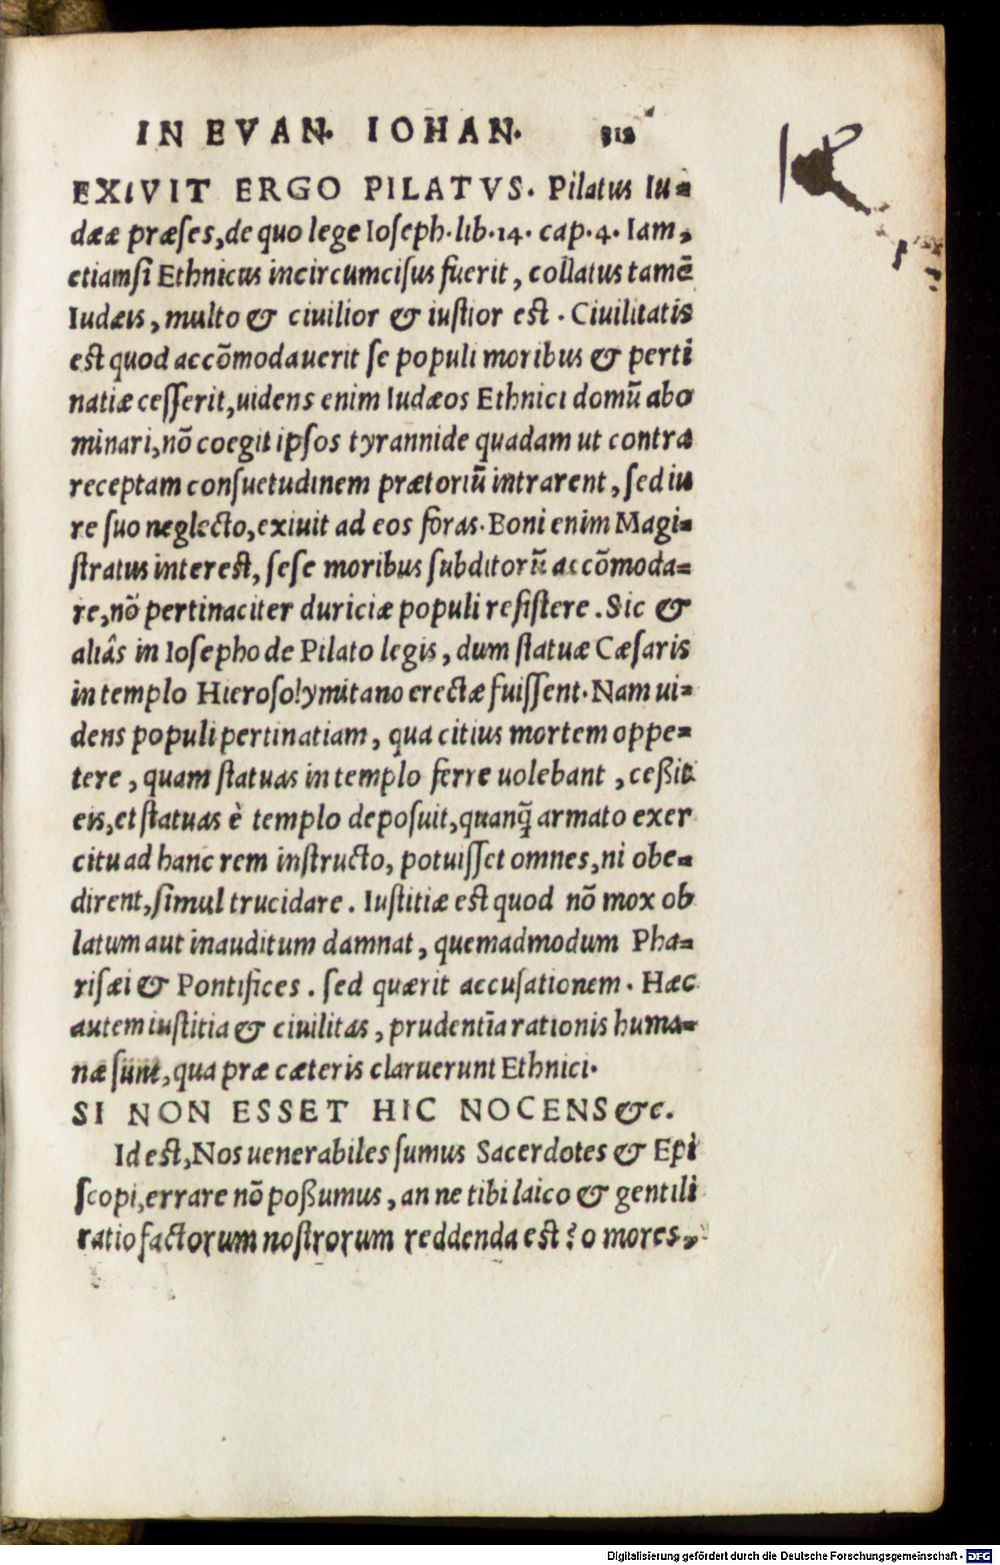 IN EVAN. IOHAN. 312
EXIVIT ERGO PILATVS. Pilatus Iu=
dææ præses, de quo lege Ioseph. lib. 14. cap. 4. Iam,
etiamsi Ethnicus incircumcisus fuerit, collatus tamē
Iudæis, multo & ciuilior & iustior est. Ciuilitatis
est quod accōmodauerit se populi moribus & perti
natiæ cesserit, uidens enim Iudæos Ethnici domū abo
minari, nō coegit ipsos tyrannide quadam ut contra
receptam consuetudinem prætoriū intrarent, sed iu
re suo neglecto, exiuit ad eos foras. Boni enim Magi=
stratus interest, sese moribus subditorū accōmoda=
re, nō pertinaciter duriciæ populi resistere. Sic &
aliâs in Iosepho de Pilato legis, dum statuæ Cæsaris
in templo Hierosolymitano erectæ fuissent. Nam ui=
dens populi pertinatiam, qua citius mortem oppe=
tere, quam statuas in templo ferre uolebant, ceßit
eis, et statuas è templo deposuit, quanq̃ armato exer
citu ad hanc rem instructo, potuisset omnes, ni obe=
dirent, simul trucidare. Iustitiæ est quod nō mox ob
latum aut inauditum damnat, quemadmodum Pha=
risæi & Pontifices. sed quærit accusationem. Hæc
autem iustitia & ciuilitas, prudentia rationis huma=
næ sunt, qua præ cæteris claruerunt Ethnici.
SI NON ESSET HIC NOCENS &c.
Id est, Nos uenerabiles sumus Sacerdotes & Epi
scopi, errare nō poßumus, an ne tibi laico & gentili
ratio factorum nostrorum reddenda est? o mores,
Digitalisierung gefördert durch die Deutsche Forschungsgemeinschaft - DFG